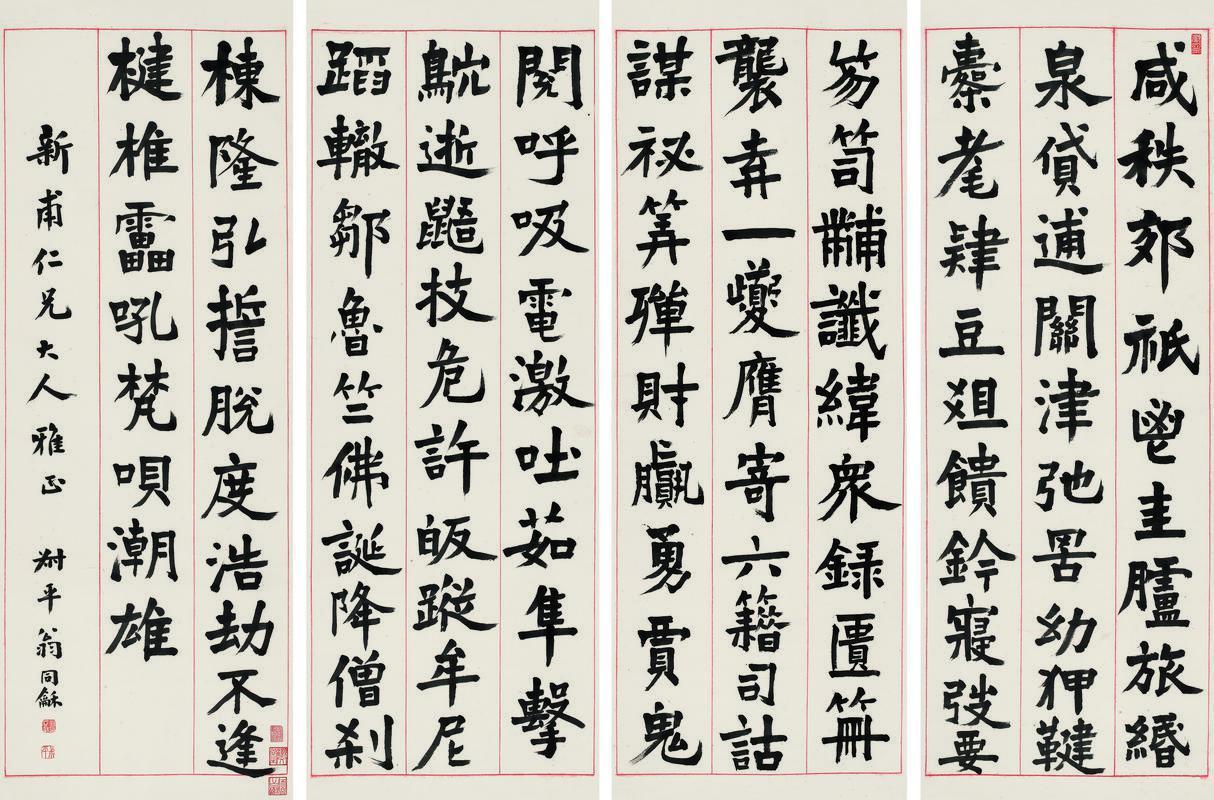 咸秩郊祇鬯圭臚旅緡
泉貸逋關津弛罟幼狎鞬
櫜耄肄豆爼饋鈐寢弢要
笏笥黼讖緯衆録匱冊
襲弆一夔膺寄六籍司詰
謀祕筭彈財贏勇賈鬼
閱呼吸電激吐茹隼擊
鴥逝鼯技危許皈蹤牟尼
蹈轍鄒魯竺佛誕降僧刹
棟隆引誓脫度浩劫不逢
楗椎靁吼梵唄潮雄
新甫仁兄大人雅正
尗平翁同龢